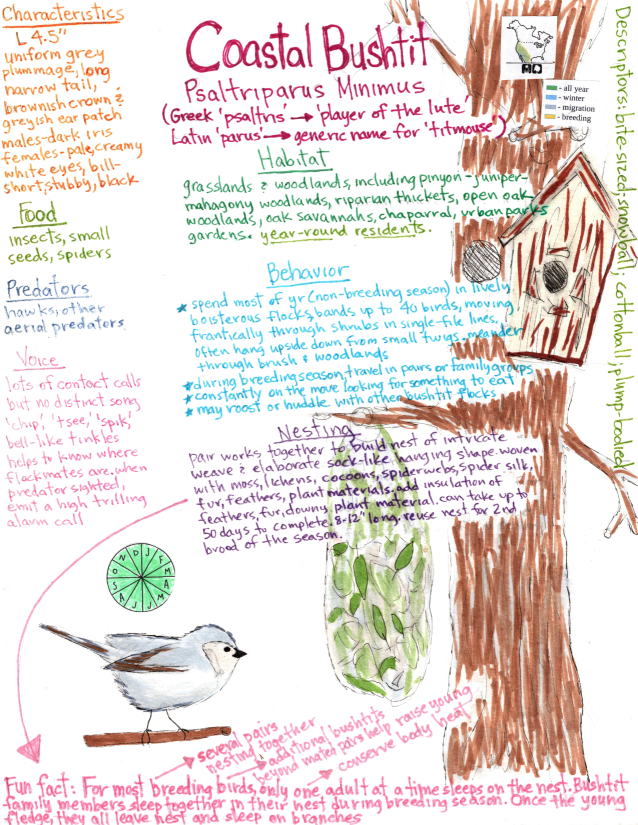 Characteristics
L 4.5"
uniform grey
plummage, long
narrow tail,
brownish crown &
greyish ear patch
males-dark iris
females-pale, creamy
white eyes, bill-
short, stubby, black
Food
insects, small
seeds, spiders
Predators
hawks, other
aerial predators
Voice
lots of contact calls
but no distinct song
'chip', 'tsee', 'spik'
bell-like tinkles
helps to know where
flockmates are. when
predator sighted,
emit a high trilling
alarm call
Coastal Bushtit
Psaltriparus Minimus
(Greek 'psaltris' → 'player of the lute'
Latin 'parus' → generic name for 'titmouse')
Habitat
grasslands & woodlands, including pinyon-juniper-
mahagony woodlands, riparian thickets, open oak
woodlands, oak savannahs, chaparral, urban parks
gardens. year-round residents.
Behavior
★ spend most of yr (non-breeding season) in lively,
boisterous flocks, bands up to 40 birds, moving
frantically through shrubs in single-file lines,
often hang upside down from small twigs. meander
through brush & woodlands
★ during breeding season, travel in pairs or family groups
★ constantly on the move looking for something to eat
★ may roost or huddle with other bushtit flocks
Nesting
pair works together to build nest of intricate
weave & elaborate sock-like hanging shape. woven
with moss, lichens, cocoons, spiderwebs, spider silk,
fur, feathers, plant materials. add insulation of
feathers, fur, downy plant material. can take up to
50 days to complete. 8-12" long. reuse nest for 2nd
brood of the season.
- all year
- winter
- migration
- breeding
Descriptors: bite-sized-snowball; cottonball; plump-bodied
J F M A M J J A S O N D
→ several pairs
nesting together
→ additional bushtits
beyond mated pairs help raise young
→ conserve body heat
Fun fact: For most breeding birds, only one adult at a time sleeps on the nest. Bushtit
family members sleep together in their nest during breeding season. Once the young
fledge, they all leave nest and sleep on branches